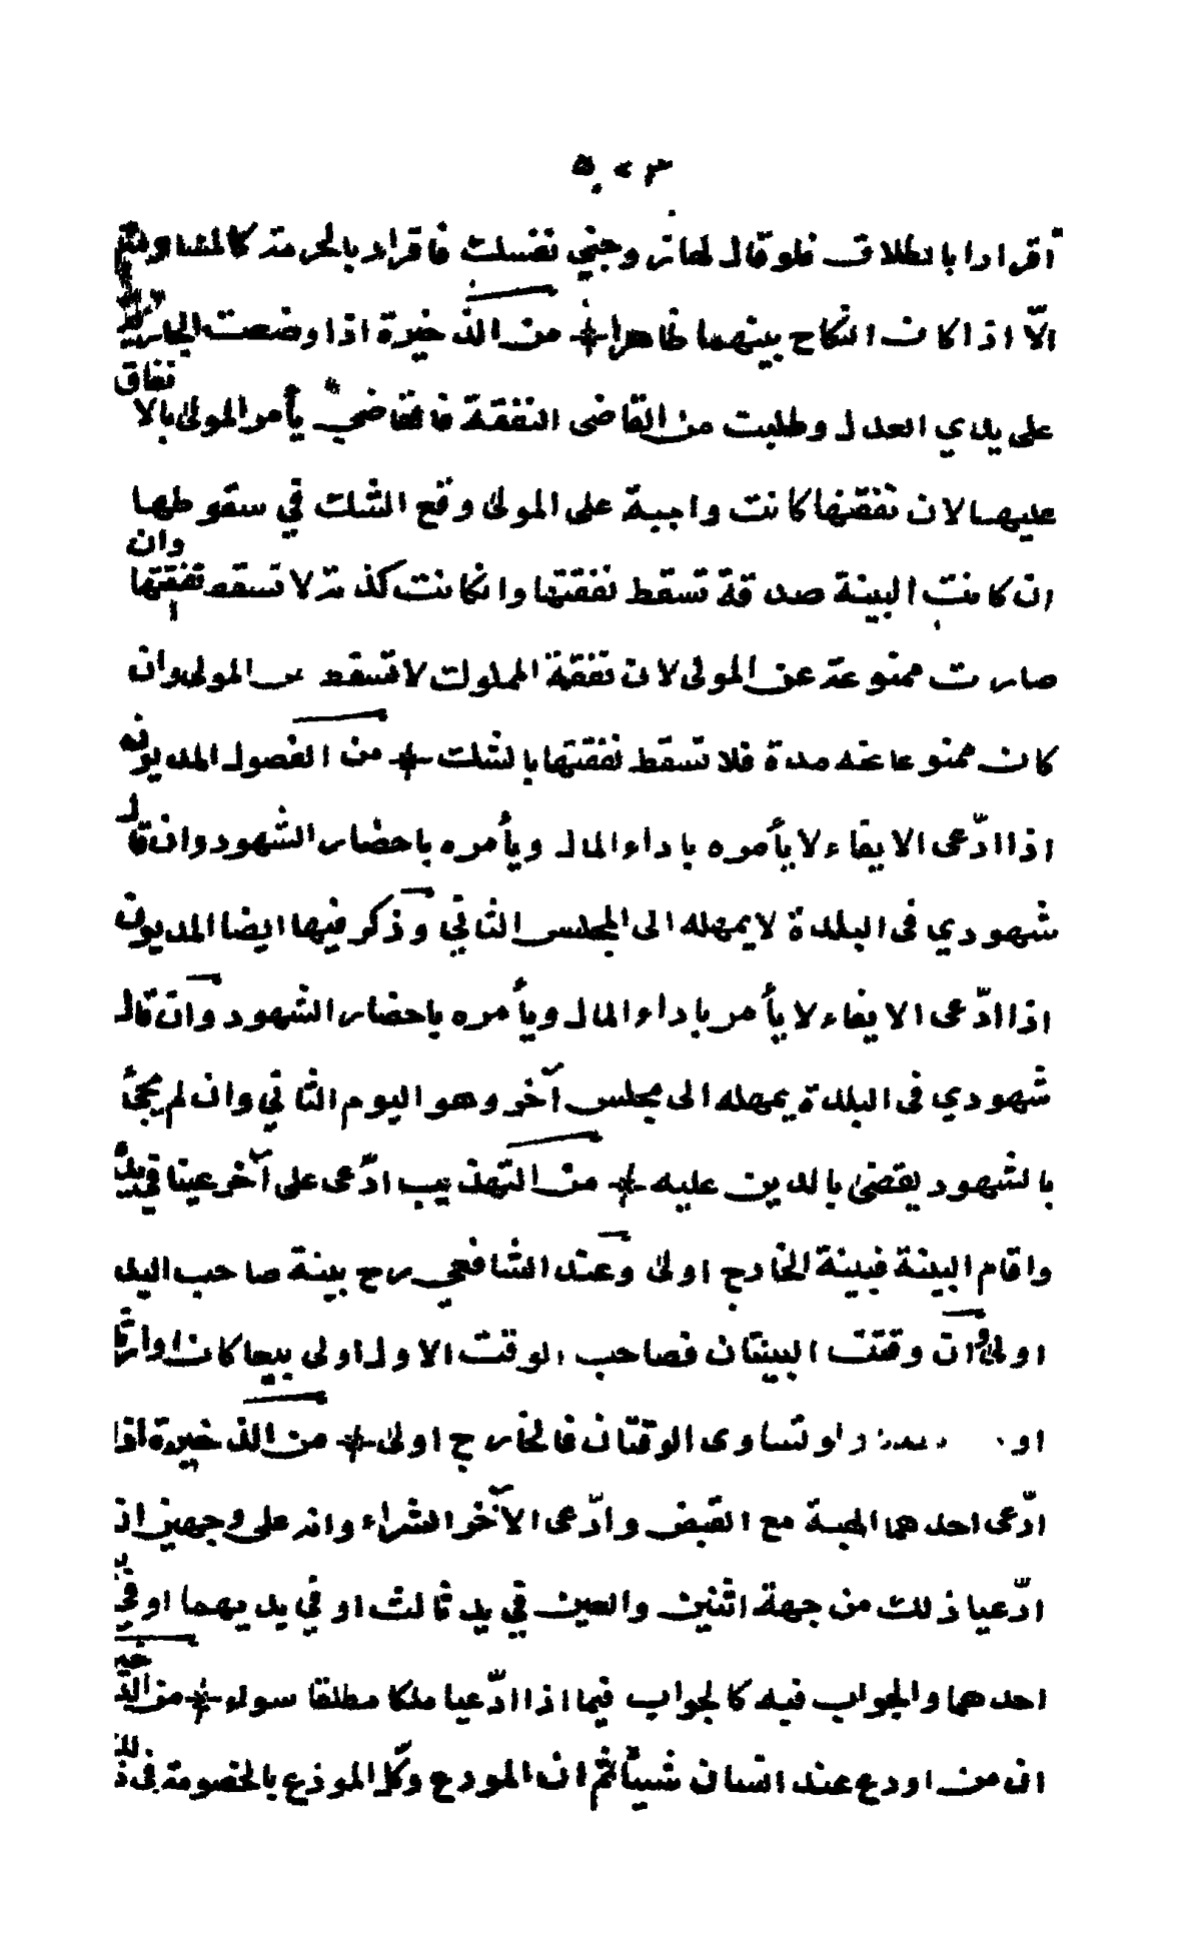 اقرارا بالطلاق فلو قال لها تزوجني نفسك فاقرار بالحرمة كالمشا
الّا اذا كان النكاح بينهما ظاهرا من الذخيرة اذا وضعت الجارية
على يدي العدل وطلبت من القاضى النفقة فالقاضي يأمر المولى بالانفاق
عليها لان نفقتها كانت واجبة على المولى وقع الشك في سقوطها
ان كانت البينة صدقة تسقط نفقتها وان كانت كذبة لا تسقط نفقتها وان
صارت ممنوعة عن المولى لان نفقة المملوك لا تسقط المولى وان
كان ممنوعا عنه مدة فلا تسقط نفقتها بالشك من الفصول المديون
اذا ادّعى الايفاء لا يأمره باداء المال ويأمره باحضار الشهود وان قال
شهودي فى البلدة لا يمهله الى المجلس الثاني وذكر فيها ايضا المديون
اذا ادّعى الايفاء لا يأمر باداء المال ويأمره باحضار الشهود وان قال
شهودي فى البلدة يمهله الى مجلس آخر وهو اليوم الثاني وان لم يجئ
بالشهود يقضى بالدين عليه من التهذيب ادّعى على آخر عينا في يده
واقام البينة فبينة الخارج اولى وعند الشافعي رح بينة صاحب اليد
اولى وان وقتت البينتان فصاحب الوقت الاول اولى بيعا كان او ارثا
او ولو تساوى الوقتان فالخارج اولى من الذخيرة اذا
ادّعى احدهما الهبة مع القبض وادّعى الآخر الشراء وانه على وجهين ان
ادّعيا ذلك من جهة اثنين والعين في يد ثالث او في يديهما او في يد
احدهما والجواب فيه كالجواب فيما اذا ادّعيا ملكا مطلقا سواء من الذخيرة
ان من اودع عند انسان شيئا ثم ان المودع وكل المودع بالخصومة في ذلك